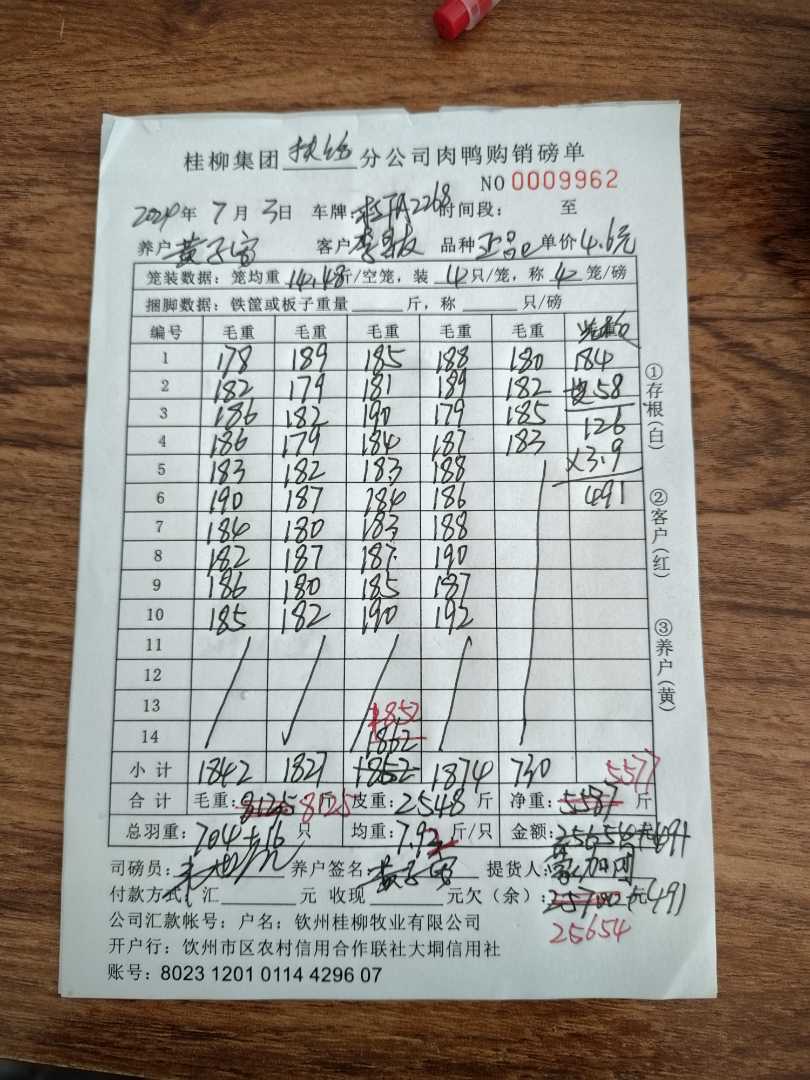 桂柳集团 扶绥 分公司肉鸭购销磅单
NO 0009962
2024年 7月 3日 车牌: 2268 时间段: 至
养户 黄子富 客户 李 品种 正品 单价 4.6元
笼装数据: 笼均重 14.48斤/空笼, 装 4只/笼, 称 4笼/磅
捆脚数据: 铁筐或板子重量 斤, 称 只/磅
编号 毛重 毛重 毛重 毛重 毛重
1 178 189 185 188 180 184
2 182 179 181 189 182 58
3 186 182 190 179 185 126
4 186 179 184 187 183 ×3.9
5 183 182 183 188 491
6 190 187 184 186
7 184 180 183 188
8 182 187 187 190
9 186 180 185 187
10 185 182 190 192
11
12
13 1852
14 1862
小计 1842 1827 1852 1874 730 5577
合计 毛重: 8125 斤 8125 皮重: 2548 斤 净重: 5587 斤
总羽重: 704+16 只 均重: 7.92 斤/只 金额: 25654元+491
司磅员: 养户签名: 黄子富 提货人: 蒙加
付款方式: 汇 元 收现 元欠(余): 25700元+491
25654
公司汇款帐号: 户名: 钦州桂柳牧业有限公司
开户行: 钦州市区农村信用合作联社大垌信用社
账号: 8023 1201 0114 4296 07
①存根(白)
②客户(红)
③养户(黄)